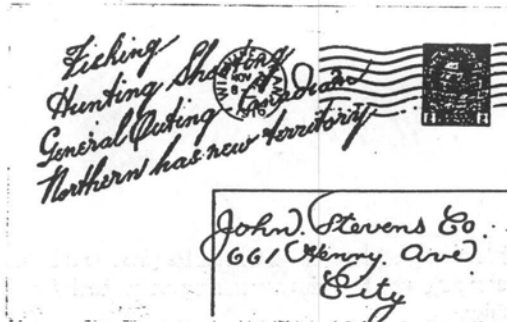 Fishing
Hunting Shooting
General Outing Canadian
Northern has new territory
WINNIPEG
NOV
8
John Stevens Co.
661 Henry Ave
City